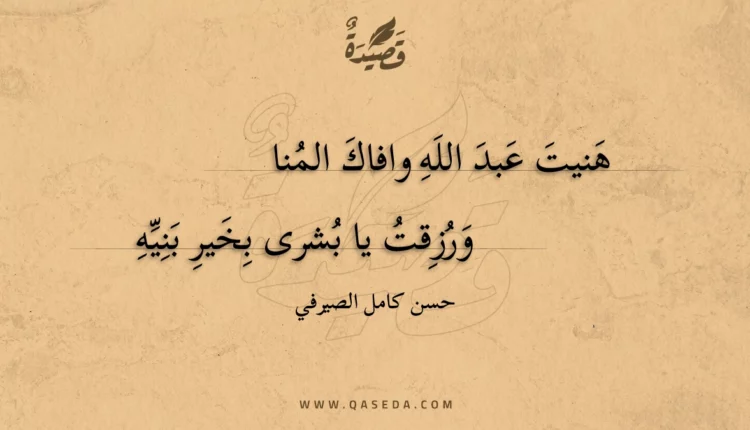 قَصِيْدَةٌ
هَنيتَ عَبدَ اللَهِ وافاكَ المُنا
وَرُزِقتُ يا بُشرى بِخَيرِ بَنِيِّهِ
حسن كامل الصيرفي
WWW.QASEDA.COM